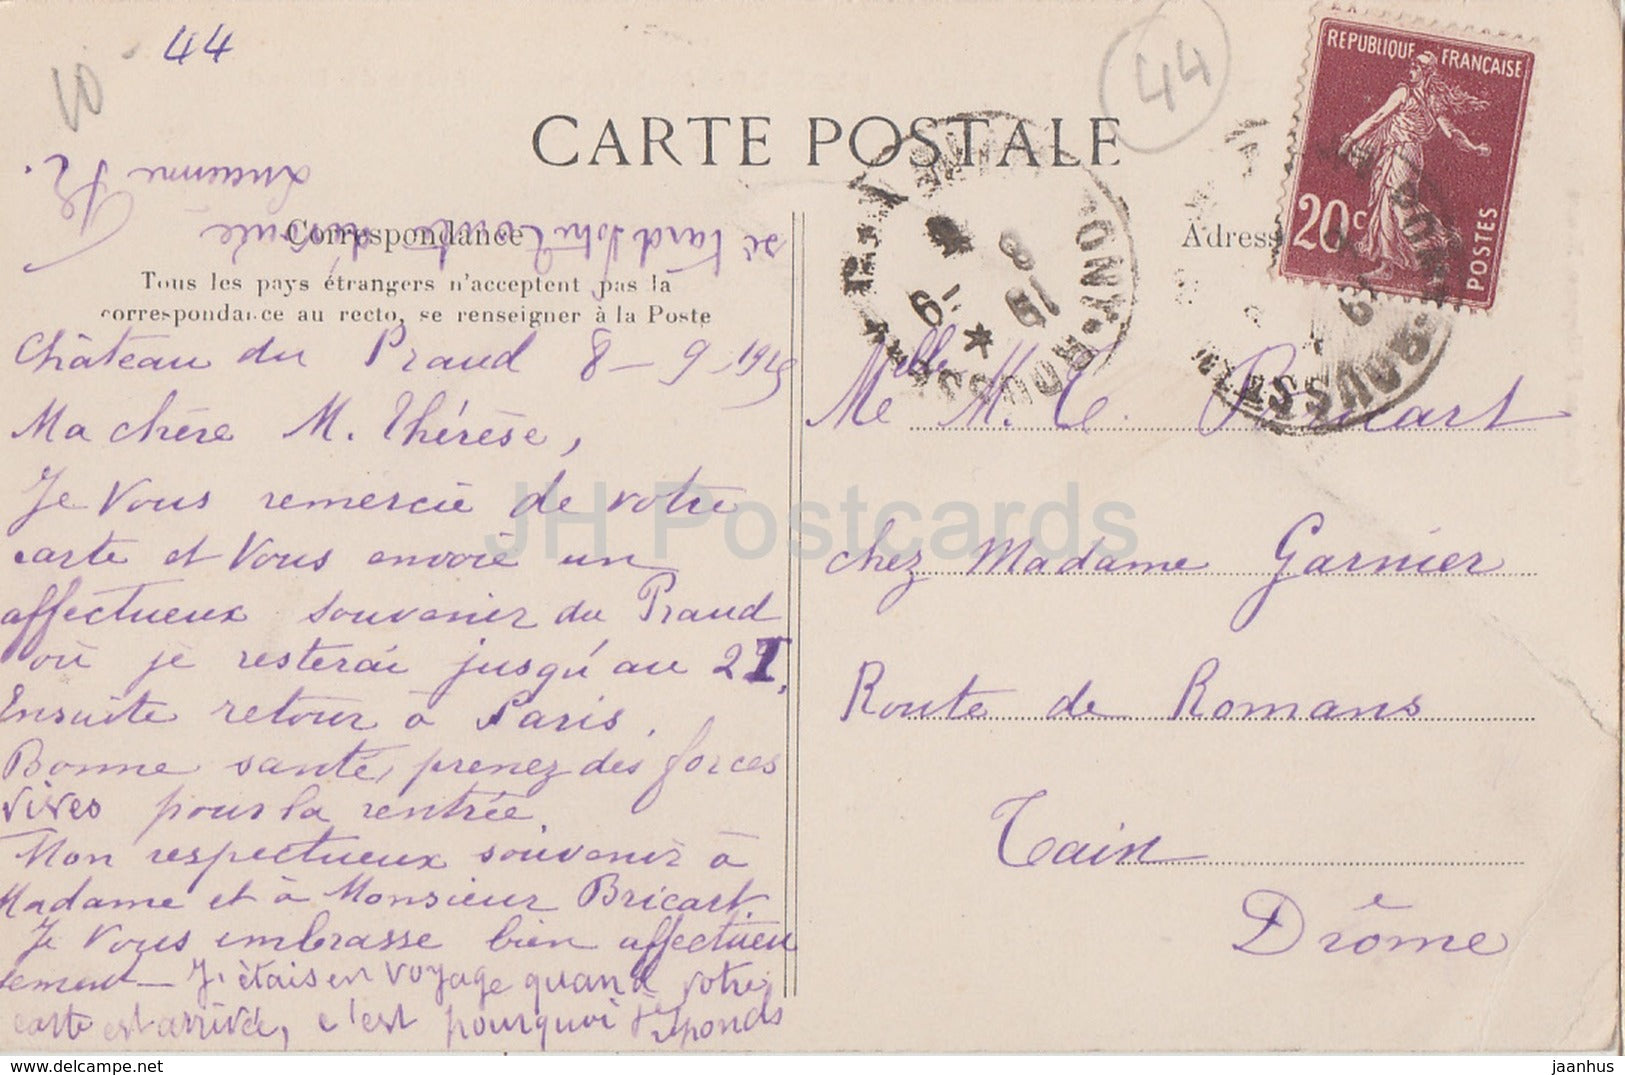 44
10
44
CARTE POSTALE
REPUBLIQUE FRANÇAISE
20c
POSTES
Correspondance
Tous les pays étrangers n'acceptent pas la
correspondance au recto, se renseigner à la Poste
Adress
Château du Praud 8-9-1925
Ma chère M. Thérèse,
Je vous remercie de votre
carte et vous envoie un
affectueux souvenir du Praud
où je resterai jusqu'au 21.
Ensuite retour à Paris.
Bonne santé, prenez des forces
vives pour la rentrée.
Mon respectueux souvenir à
Madame et à Monsieur Bricart.
Je vous embrasse bien affectueu
sement — J'étais en voyage quand votre
carte est arrivée, c'est pourquoi je réponds
si tard
Lucienne R.
Melle M. T. Bricart
chez Madame Garnier
Route de Romans
Tain
Drôme
JH Postcards
jh-postcards.myshopify.com
jaanhus